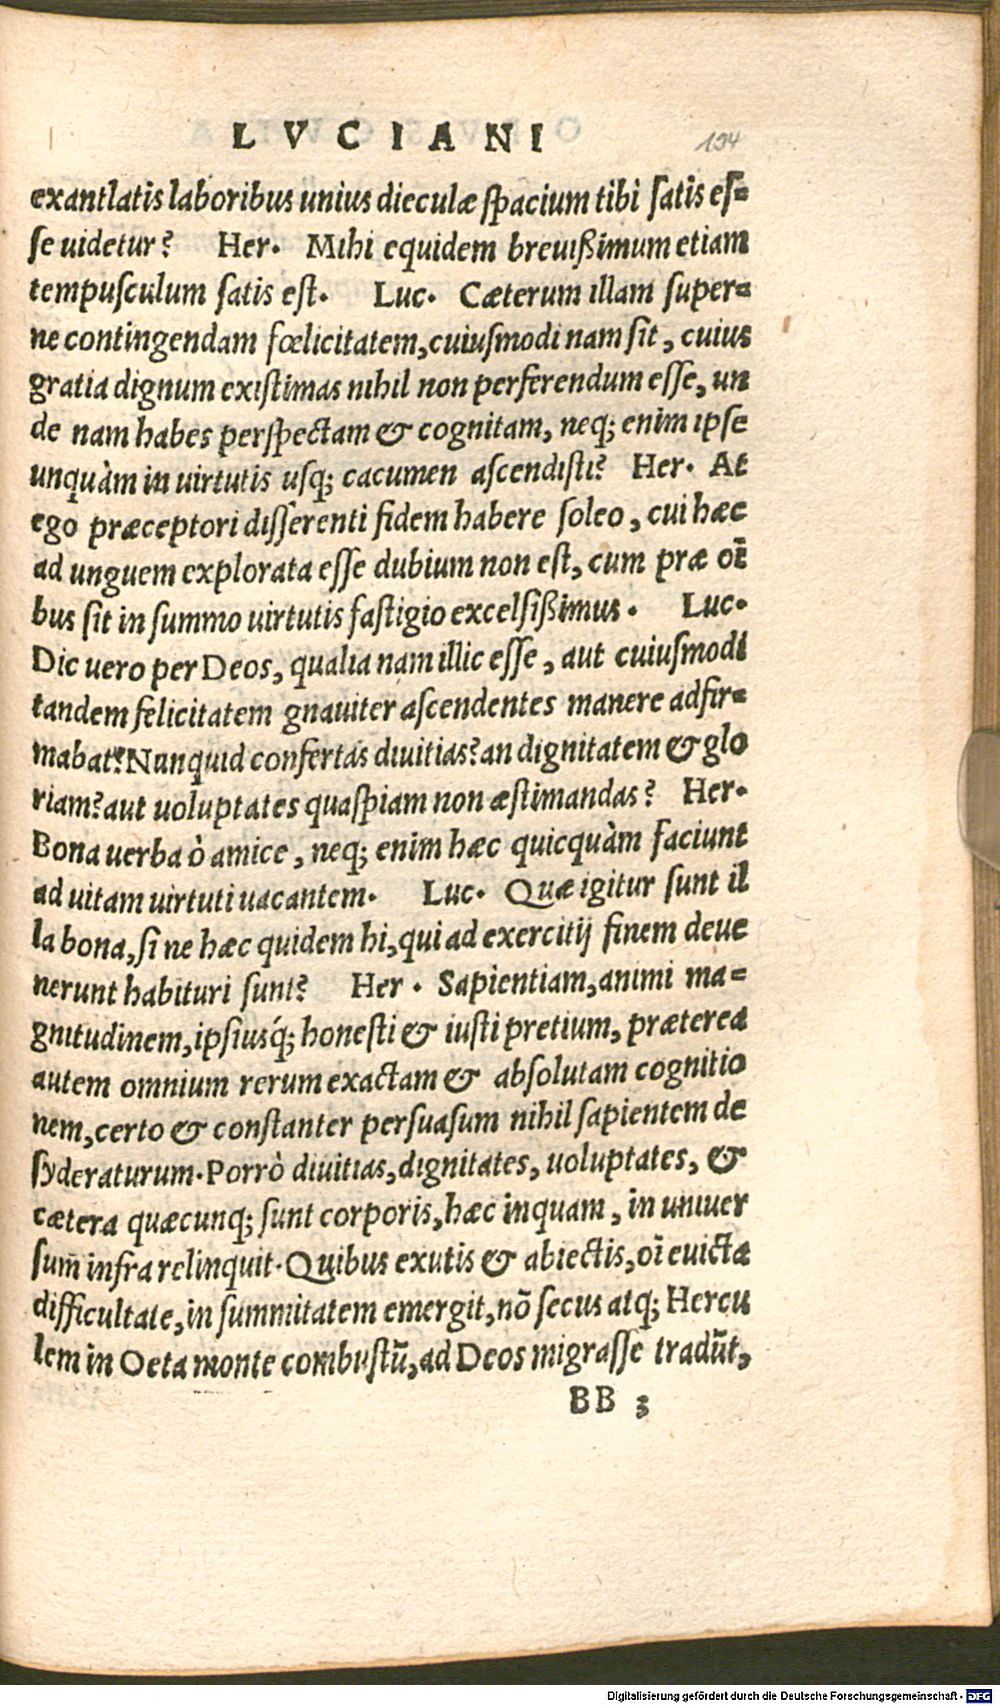 LVCIANI
194
exantlatis laboribus unius dieculæ spacium tibi satis es=
se uidetur? Her. Mihi equidem breuißimum etiam
tempusculum satis est. Luc. Cæterum illam super=
ne contingendam fœlicitatem, cuiusmodi nam sit, cuius
gratia dignum existimas nihil non perferendum esse, un
de nam habes perspectam & cognitam, neq; enim ipse
unquàm in uirtutis usq; cacumen ascendisti? Her. At
ego præceptori disserenti fidem habere soleo, cui hæc
ad unguem explorata esse dubium non est, cum præ oī
bus sit in summo uirtutis fastigio excelsißimus. Luc.
Dic uero per Deos, qualia nam illic esse, aut cuiusmodi
tandem felicitatem gnauiter ascendentes manere adfir=
mabat? Nunquid confertas diuitias? an dignitatem & glo
riam? aut uoluptates quaspiam non æstimandas? Her.
Bona uerba ò amice, neq; enim hæc quicquàm faciunt
ad uitam uirtuti uacantem. Luc. Quæ igitur sunt il
la bona, si ne hæc quidem hi, qui ad exercitij finem deue
nerunt habituri sunt? Her. Sapientiam, animi ma=
gnitudinem, ipsiusq́; honesti & iusti pretium, præterea
autem omnium rerum exactam & absolutam cognitio
nem, certo & constanter persuasum nihil sapientem de
syderaturum. Porrò diuitias, dignitates, uoluptates, &
cætera quæcunq; sunt corporis, hæc inquam, in uniuer
sum̄ infra relinquit. Quibus exutis & abiectis, oī euicta
difficultate, in summitatem emergit, nō secus atq; Hercu
lem in Oeta monte combustū, ad Deos migrasse tradūt,
BB 3
Digitalisierung gefördert durch die Deutsche Forschungsgemeinschaft - DFG